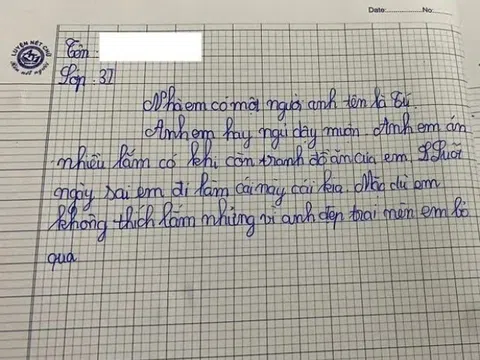 Date: No:
LUYỆN NÉT CHỮ
Rèn nết người
Tên:
Lớp: 37
Nhà em có một người anh tên là Tú.
Anh em hay ngủ dậy muộn. Anh em ăn
nhiều lắm có khi còn tranh đồ ăn của em. Suốt
ngày sai em đi làm cái này cái kia. Mặc dù em
không thích lắm nhưng vì anh đẹp trai nên em bỏ
qua